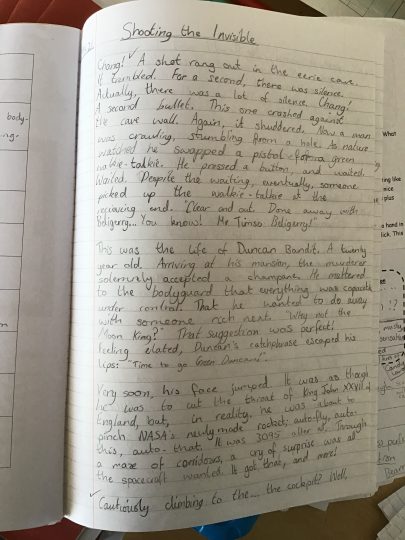 Shooting the Invisible
Chang! A shot rang out in the eerie cave.
It rumbled. For a second, there was silence.
Actually, there was a lot of silence. Chang!
A second bullet. This one crashed against
the cave wall. Again, it shuddered. Now a man
was crawling, stumbling from a hole. As nature
watched he swapped a pistol for a green
walkie-talkie. He pressed a button, and waited.
Waited. Despite the waiting, eventually, someone
picked up the walkie-talkie at the
receiving end. "Clear and out. Done away with
Beligerry... You know! Mr Timso Beligerry!"
This was the life of Duncan Bandit. A twenty
year old. Arriving at his mansion, the murderer
solemnly accepted a champane. He muttered
to the bodyguard that everything was
under control. That he wanted to do away
with someone rich next. "Why not the
Moon King?" That suggestion was perfect!
Feeling elated, Duncan's catchphrase escaped his
lips: "Time to go Green Duncan!".
Very soon, his face jumped. It was as though
he was to cut the throat of King John XXVII of
England, but, in reality, he was about to
pinch NASA's newly made rocket; auto-fly, auto-
this, auto-that. It was 3095 after all. Through
a maze of corridors, a cry of surprise was all
the spacecraft wanted. It got that, and more!
Cautiously climbing to the... the cockpit? Well,
body-
What
ing like
nice
plus
a hand in
lick. This